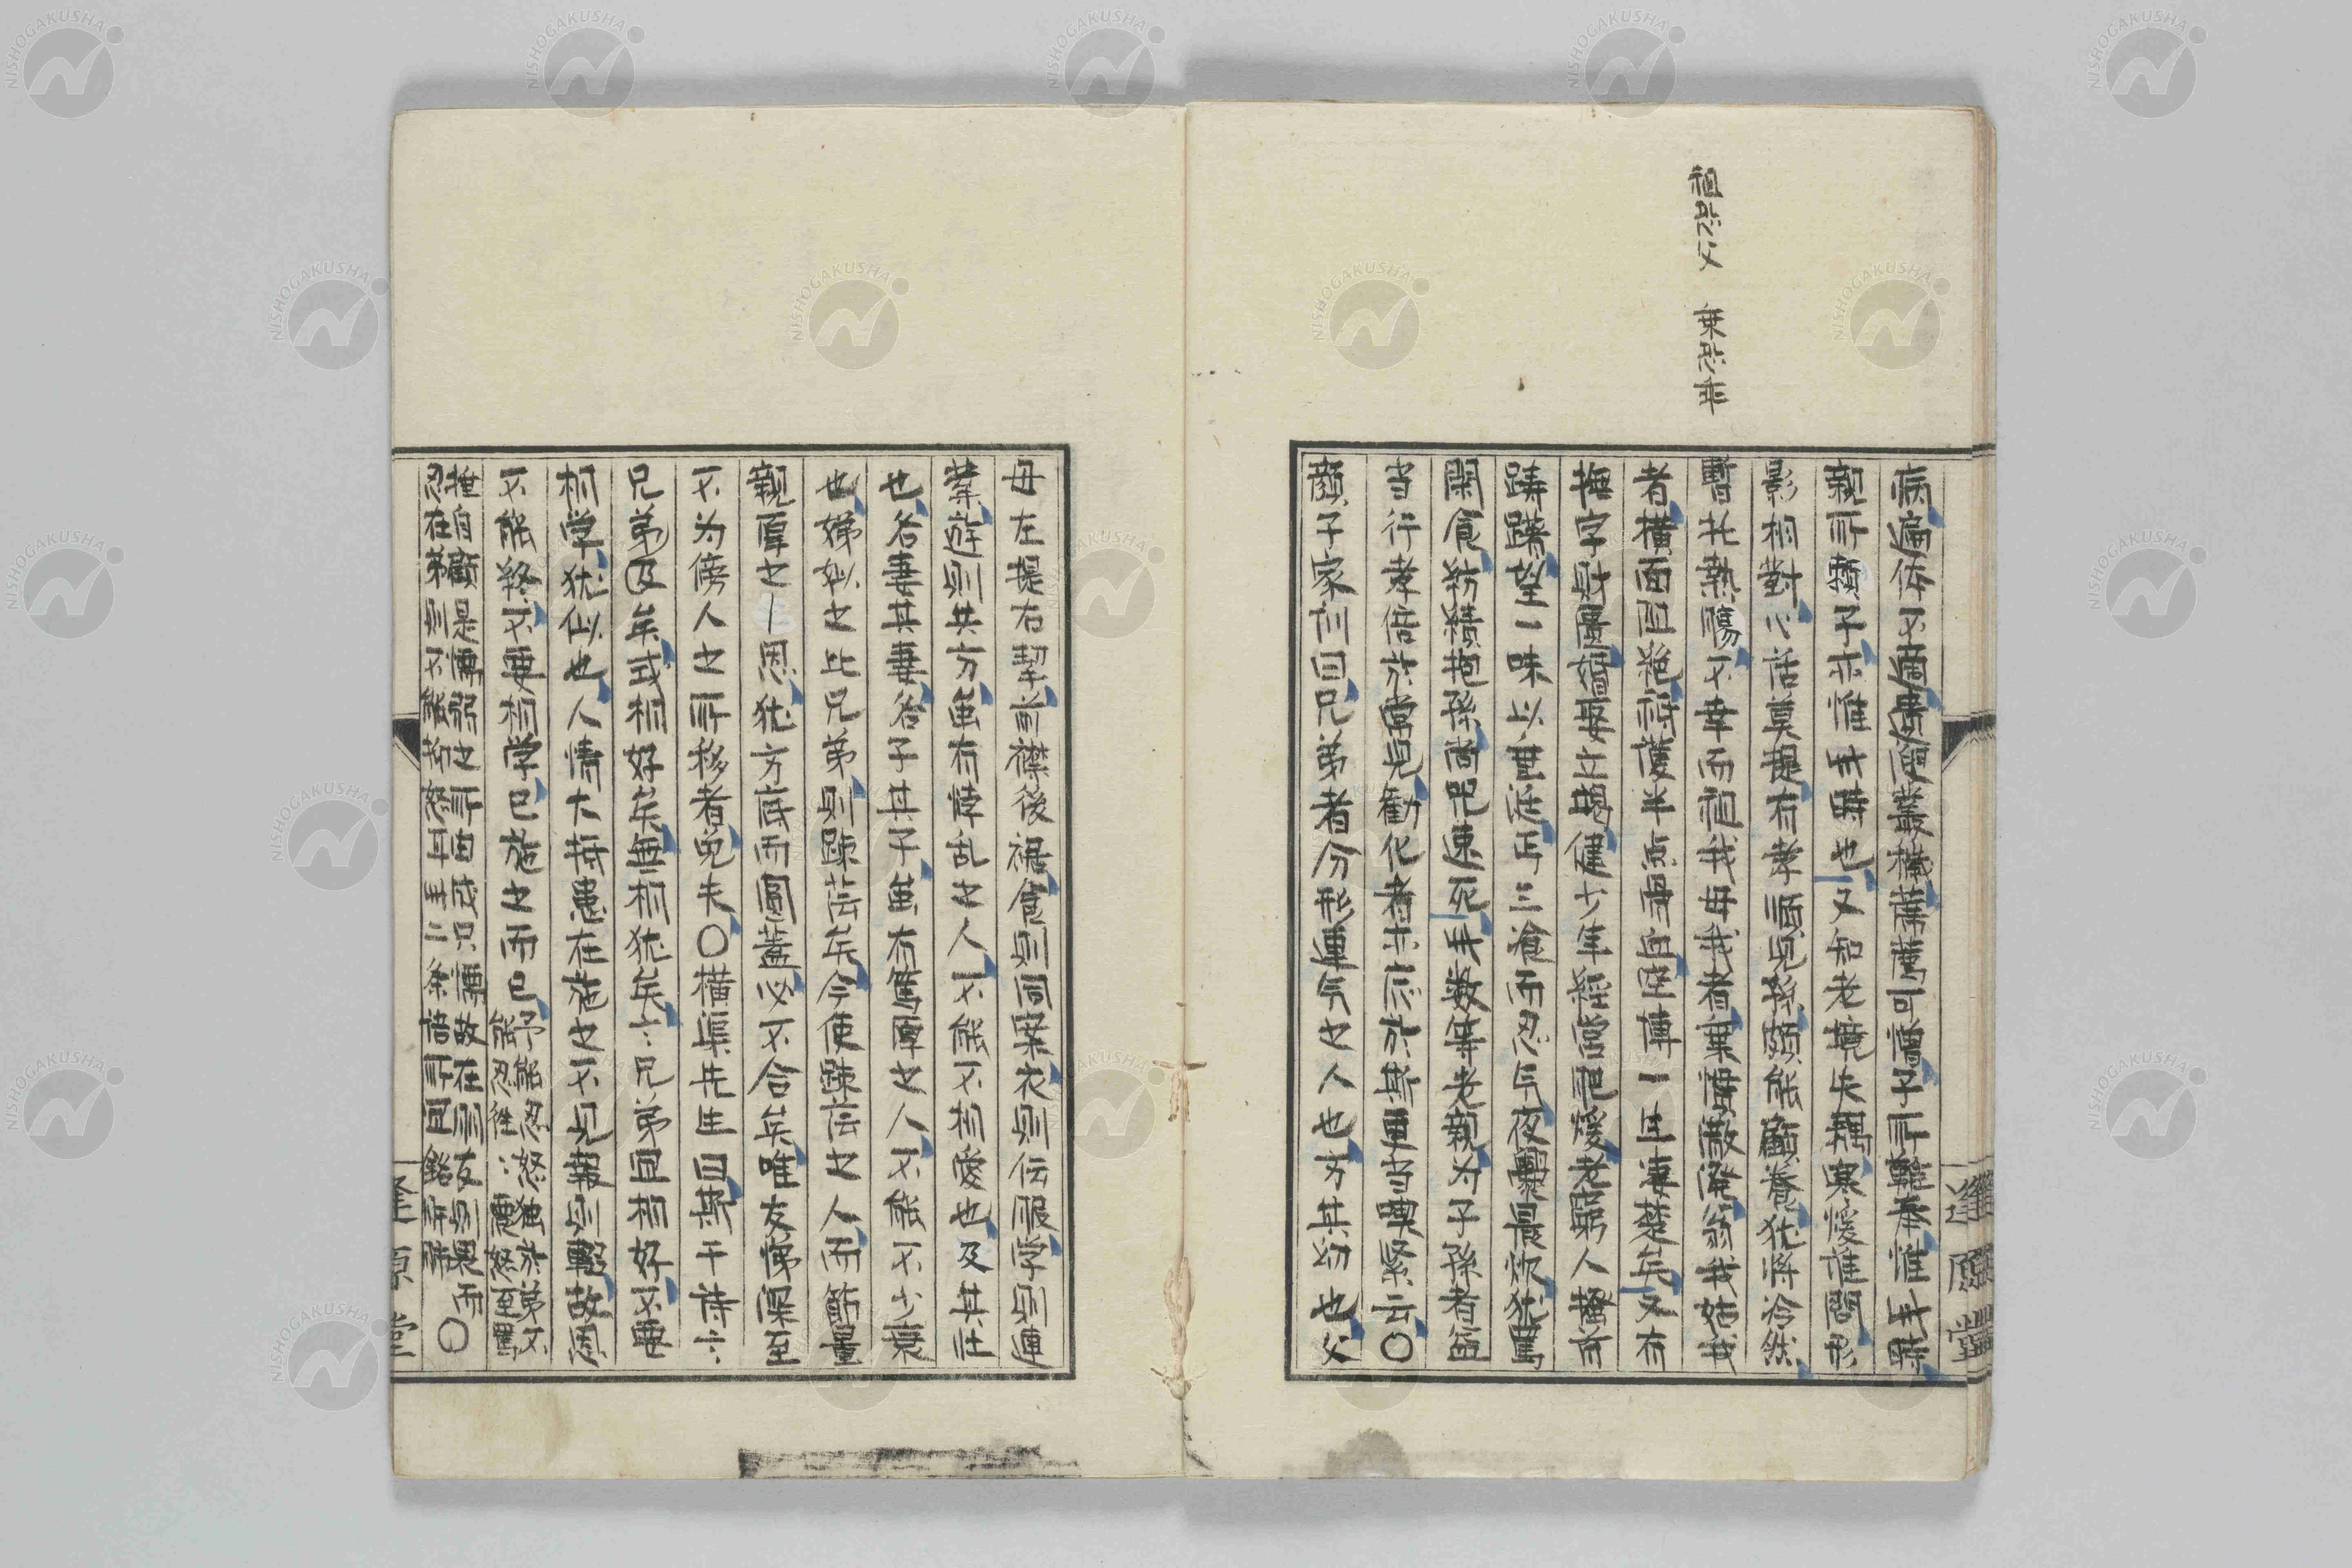 病遍体不適屢遭叢機薄蔫可憎子所難奉惟此時
親所頼子亦惟此時也又知老境失耦寒煖誰問形
影相對心話莫提有孝順児孫頗能顧養猶將冷然
暫托熱腸不幸而祖我母我者棄嫌散潑翁我姑我
者横面阻絶将護半点骨血空博一生凄楚矣又有
撫字財匱婚娶立塌健少年經営肥煖老窮人搔首
踌躇望一味以垂涎丐三飡而忍气夜爨晨炊猶罵
閑食紡績抱孫尚咒速死此数等老親为子孫者益
当行孝倍於常児勸化者亦応於斯更当喫緊云〇
顔子家訓曰兄弟者分形連气之人也方其幼也父
祖是父 棄是非
母左提右挈前襟後裾食則同案衣則伝服学則連
業遊則共方虽有悖乱之人不能不相愛也及其壮
也各妻其妻各子其子虽有篤厚之人不能不少衰
也娣姒之比兄弟則疎薄矣今使疎薄之人而節量
親厚之恩猶方底而圓蓋必不合矣唯友悌深至
不为傍人之所移者免夫〇横渠先生曰斯干詩云
兄弟及矣式相好矣無相猶矣言兄弟宜相好不要
相学猶似也人情大抵患在施之不見報則輟故恩
不能終不要相学己施之而已予能忍怒独於弟不
能忍往々震怒至罵
捶自顧是博弱之所由成只博故在則友則異而〇
忍在弟則不能抑怒耳此二条語所宜銘佩
NISHOGAKUSHA